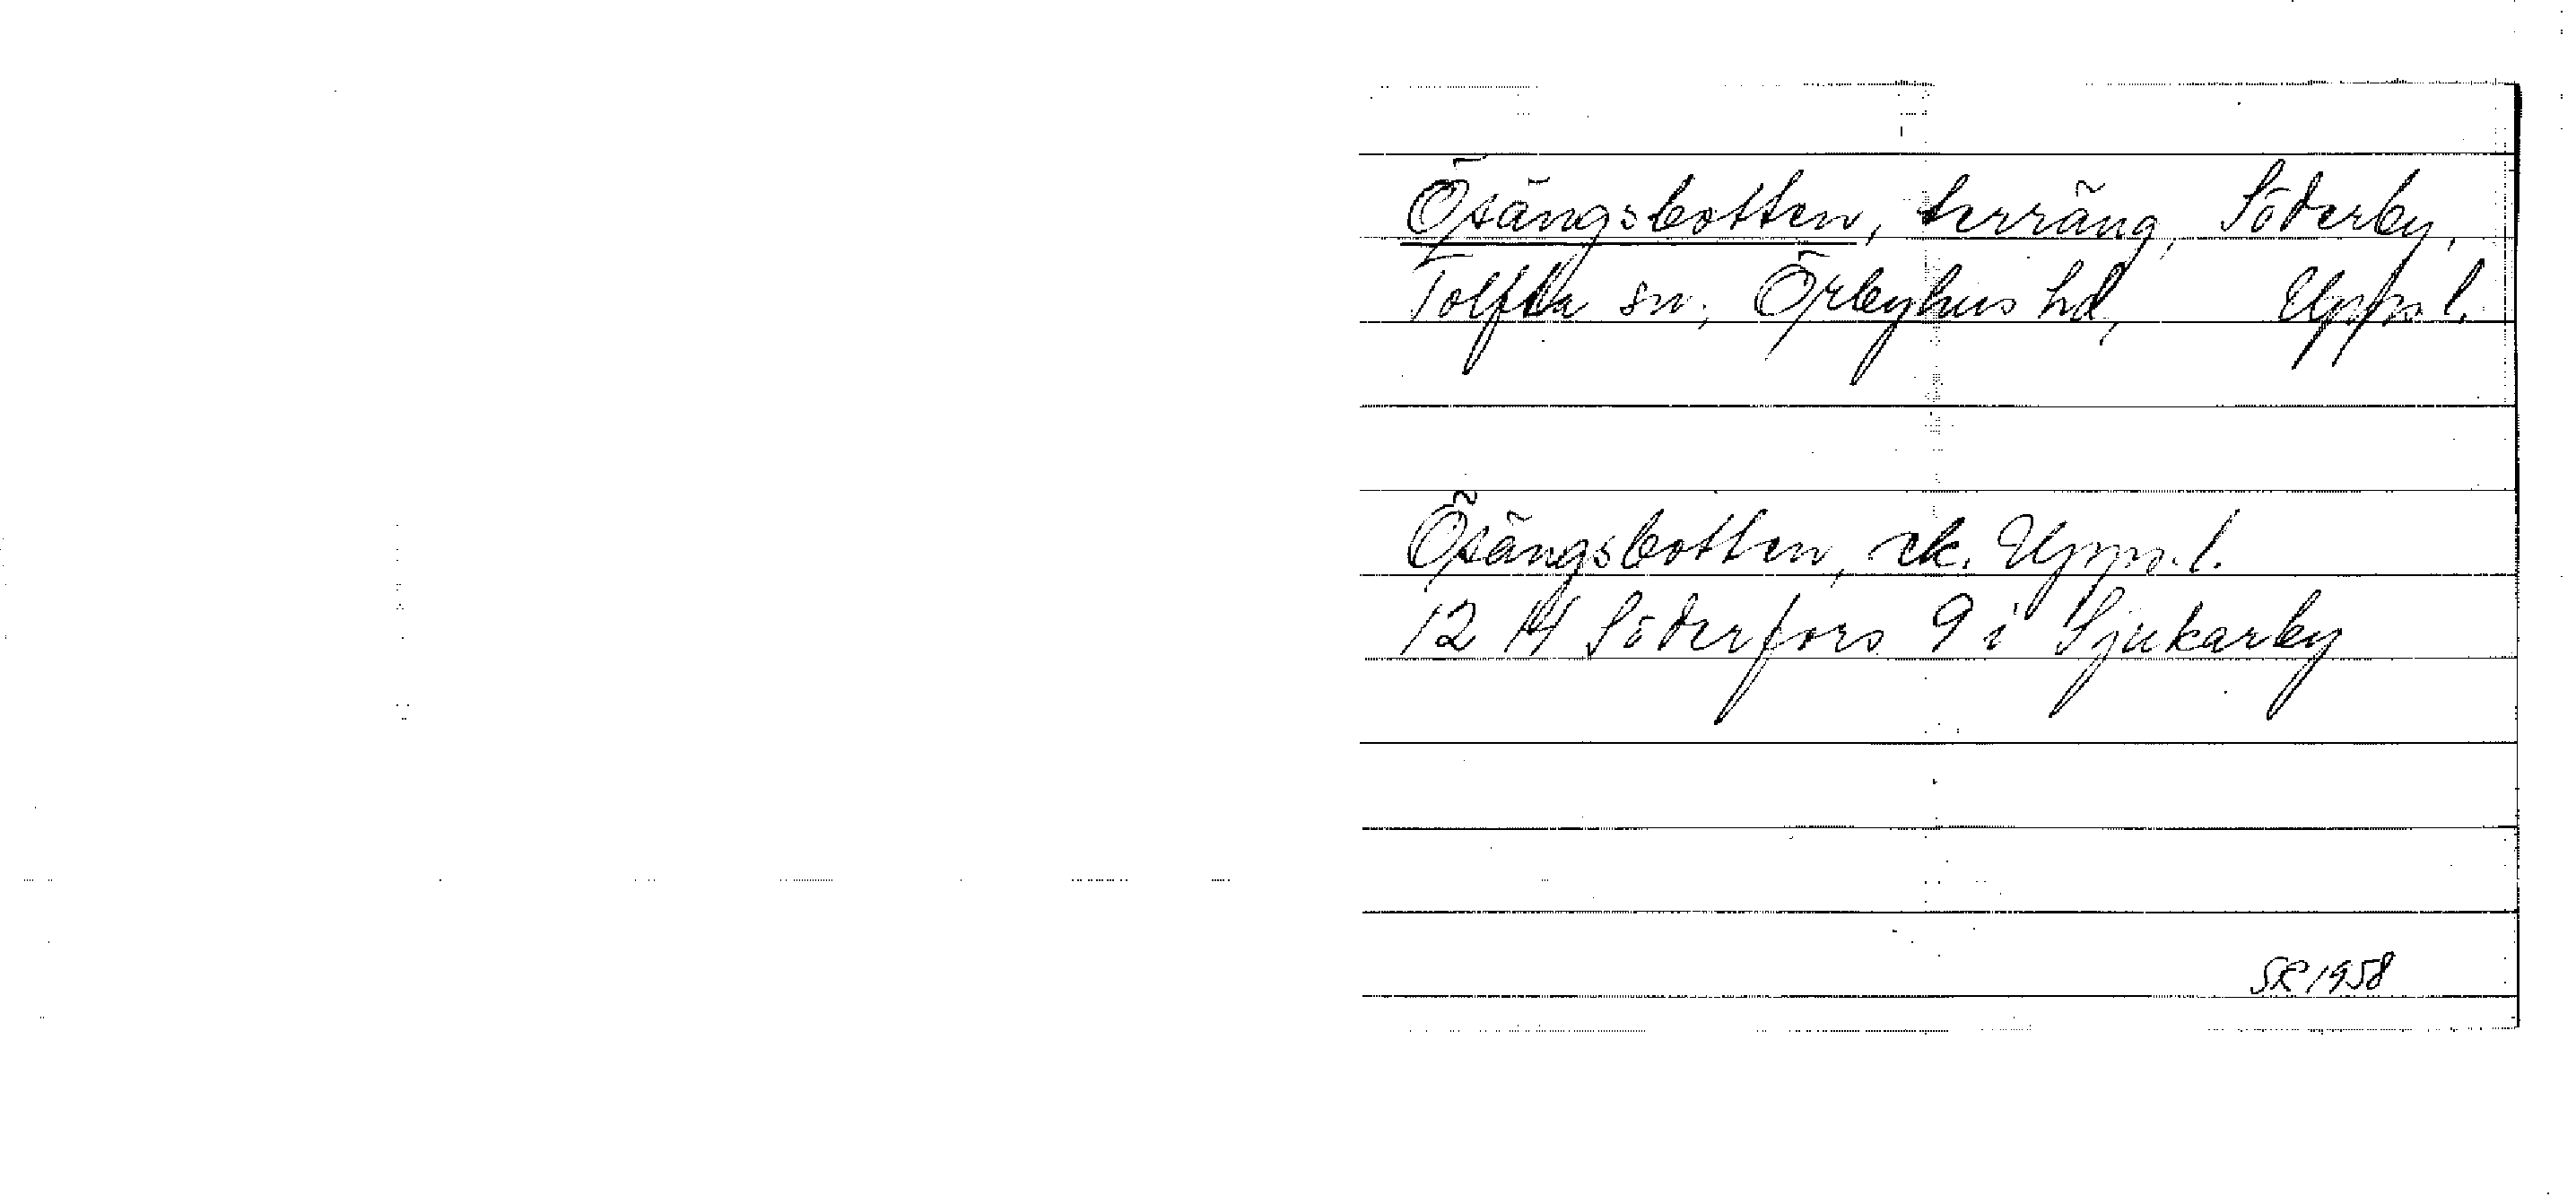 Ösängsbotten, terräng, Söderby,
Tolfta sn, Örbyhus hd, Upps. l.
Ösängsbotten, ek. Upps. l.
12 H Söderfors 9 i Sjukarby
SR 1958